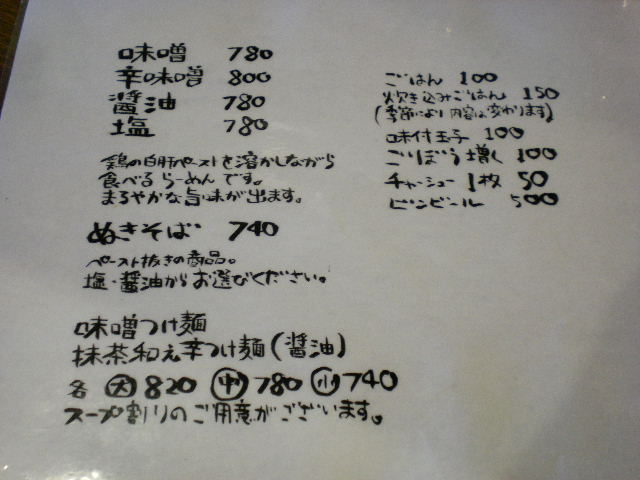 味噌 780
辛味噌 800
醤油 780
塩 780
鶏の白肝ペーストを溶かしながら
食べるらーめんです。
まろやかな旨味が出ます。
ぬきそば 740
ペースト抜きの商品。
塩・醤油からお選びください。
味噌つけ麺
抹茶和え辛つけ麺(醤油)
各 大 820 中 780 小 740
スープ割りのご用意がございます。
ごはん 100
炊き込みごはん 150
(季節により内容は変わります)
味付玉子 100
ごぼう増し 100
チャーシュー1枚 50
ビンビール 500